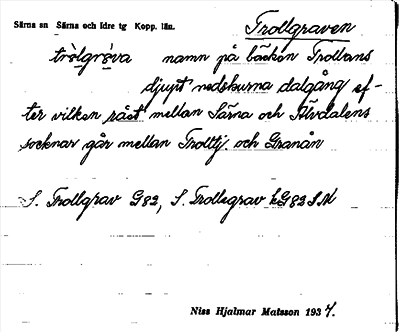 Särna sn Särna och Idre tg Kopp. län.
Trollgraven
tròlgrò̤va namn på bäcken Trollans
djupt nedskurna dalgång ef-
ter vilken rået mellan Särna och Älvdalens
socknar går mellan Trolltj. och Granån
S. Trollgrav G82, S. Trollegrav LG82 SN
Niss Hjalmar Matsson 1934.